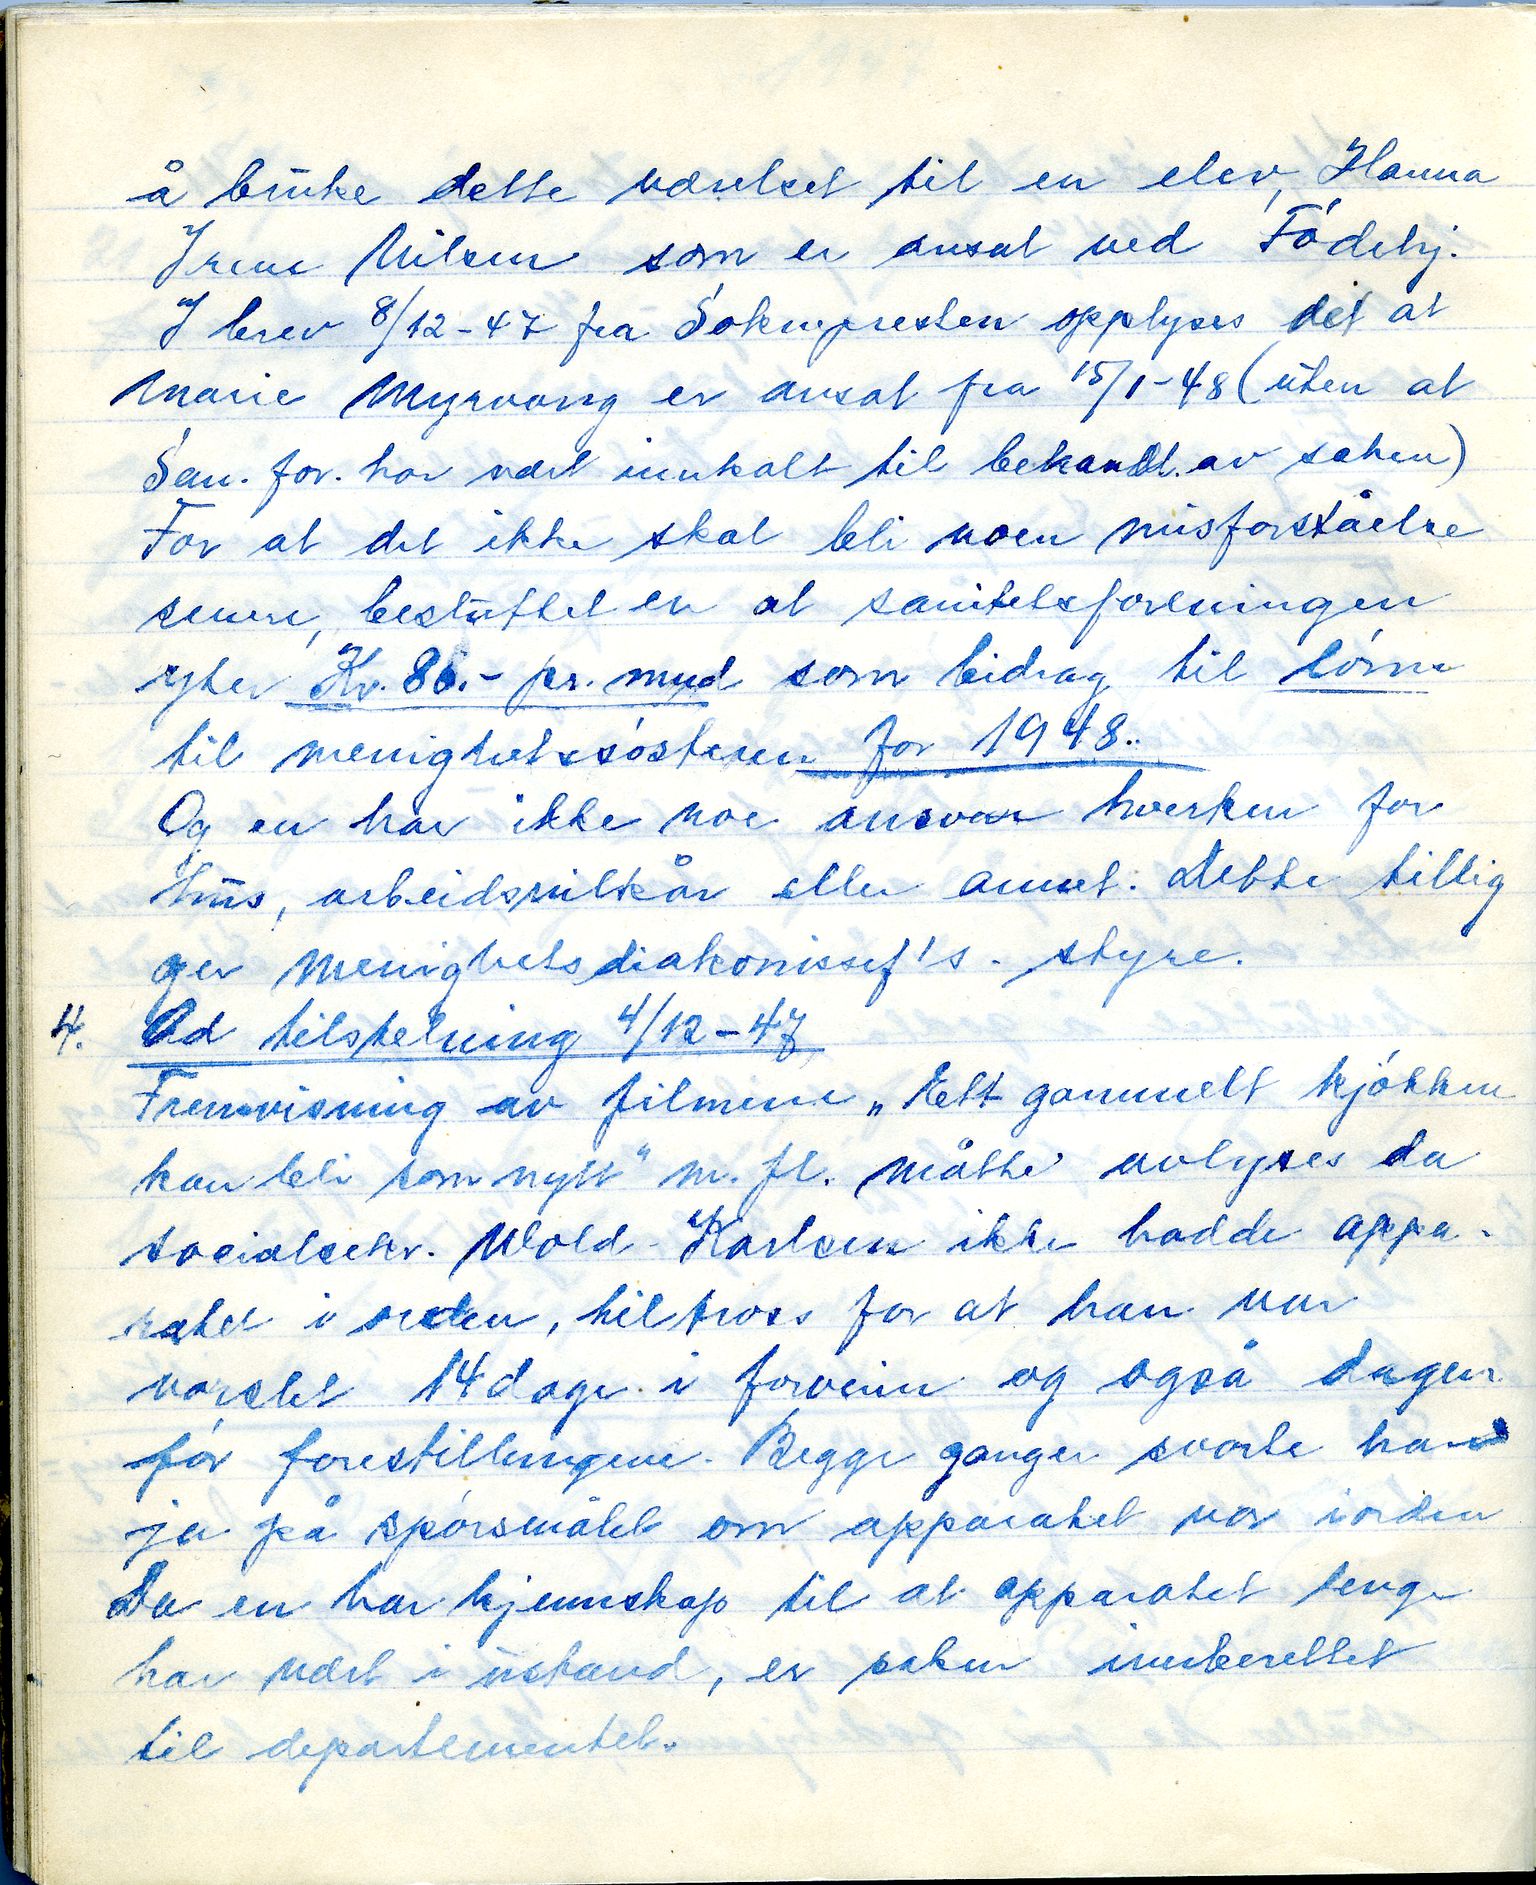 å bruke dette værelset til en elev, Hanna
Irene Nilsen som er ansat ved Fødehj.
I brev 8/12-47 fra Soknepresten opplyses det at
Marie Myrvang er ansat fra 15/1-48 (uten at
San. for. har vært innkalt til behandl. av saken)
For at det ikke skal bli noen misforståelse
senere, besluttet en at sanitetsforeningen
yter Kr. 86.- pr. mnd som bidrag til lønn
til menighetssøsteren for 1948.
Og en har ikke noe ansvar hverken for
hus, arbeidsvilkår eller annet. Dette tillig
ger menighetsdiakonissef's. styre.
4. Ad tilstelning 4/12-47
Fremvisning av filmene „Ett gammelt kjøkken
kan bli som nytt" m. fl. måtte avlyses da
socialsekr. Wold-Karlsen ikke hadde appa-
ratet i orden, tiltross for at han var
varslet 14 dage i forveien og også dagen
før forestillingene. Begge ganger svarte han
ja på spørsmålet om apparatet var iorden
Da en har kjennskap til at apparatet lenge
har vært i ustand, er saken innberettet
til departementet.